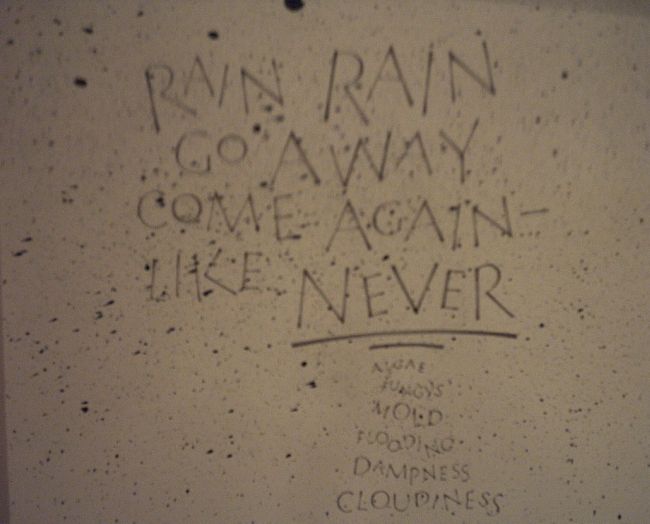 RAIN RAIN
GO AWAY
COME AGAIN-
LIKE NEVER
ALGAE
FUNGUS
MOLD
FLOODING
DAMPNESS
CLOUDINESS